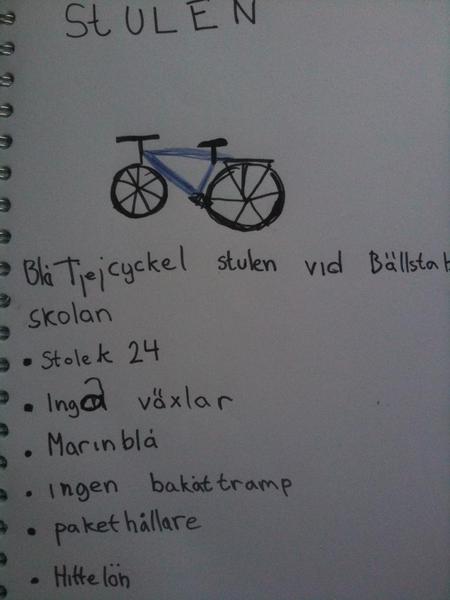 StULEN
Blå Tjejcyckel stulen vid Bällstab
skolan
• Stolek 24
• Inga växlar
• Marinblå
• ingen bakåttramp
• pakethållare
• Hittelön